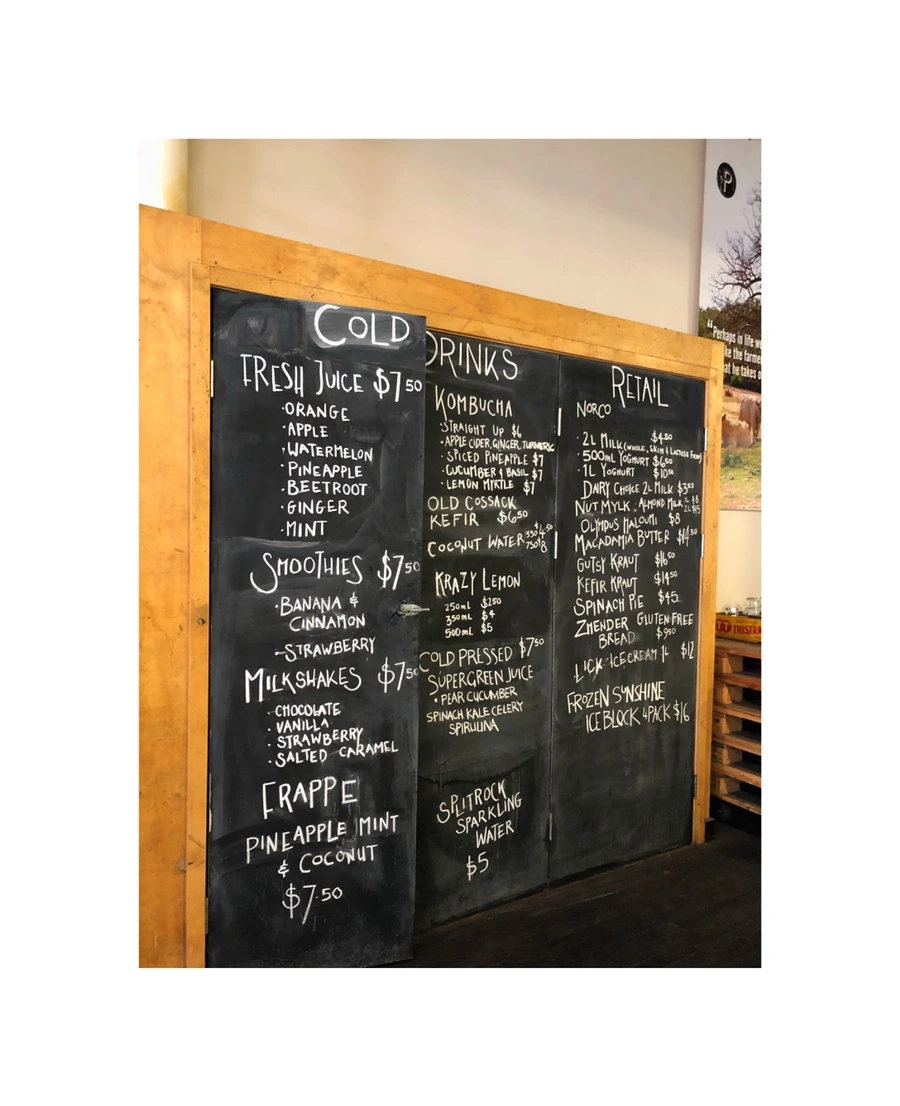 COLD
FRESH JUICE $7.50
·ORANGE
·APPLE
·WATERMELON
·PINEAPPLE
·BEETROOT
·GINGER
·MINT
SMOOTHIES $7.50
·BANANA &
CINNAMON
-STRAWBERRY
MILKSHAKES $7.50
·CHOCOLATE
·VANILLA
·STRAWBERRY
·SALTED CARAMEL
FRAPPE
PINEAPPLE MINT
& COCONUT
$7.50
DRINKS
KOMBUCHA
·STRAIGHT UP $6
·APPLE CIDER, GINGER, TURMERIC
·SPICED PINEAPPLE $7
·CUCUMBER & BASIL $7
·LEMON MYRTLE $7
OLD COSSACK
KEFIR $6.50
COCONUT WATER
KRAZY LEMON
250ML $2.50
350ML $4
500ML $5
COLD PRESSED $7.50
SUPERGREEN JUICE
·PEAR CUCUMBER
SPINACH KALE CELERY
SPIRULINA
SPLITROCK
SPARKLING
WATER
$5
RETAIL
NORCO
·2L MILK (WHOLE, SKIM & LACTOSE FREE) $4.50
·500ML YOGHURT $6.50
·1L YOGHURT $10.50
DAIRY CHOICE 2L MILK $3.50
NUT MYLK - ALMOND MILK
OLYMPUS HALOUMI $8
MACADAMIA BUTTER
GUTSY KRAUT $16.50
KEFIR KRAUT $14.50
SPINACH PIE $45
ZHENDER GLUTEN FREE
BREAD $9.50
LICK ICECREAM 1L $12
FROZEN SUNSHINE
ICE BLOCK 4PACK $16
P
"Perhaps in life we
ke the farme
at he takes o
TRISTRA